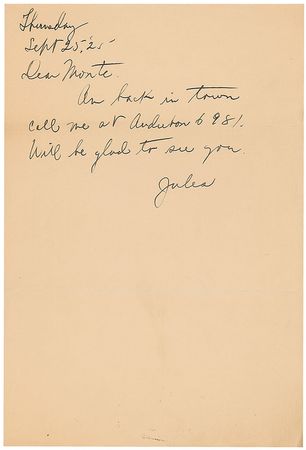 Thursday
Sept 25, '25
Dear Monte.
Am back in town
call me at Audubon 6981.
Will be glad to see you.
Jules